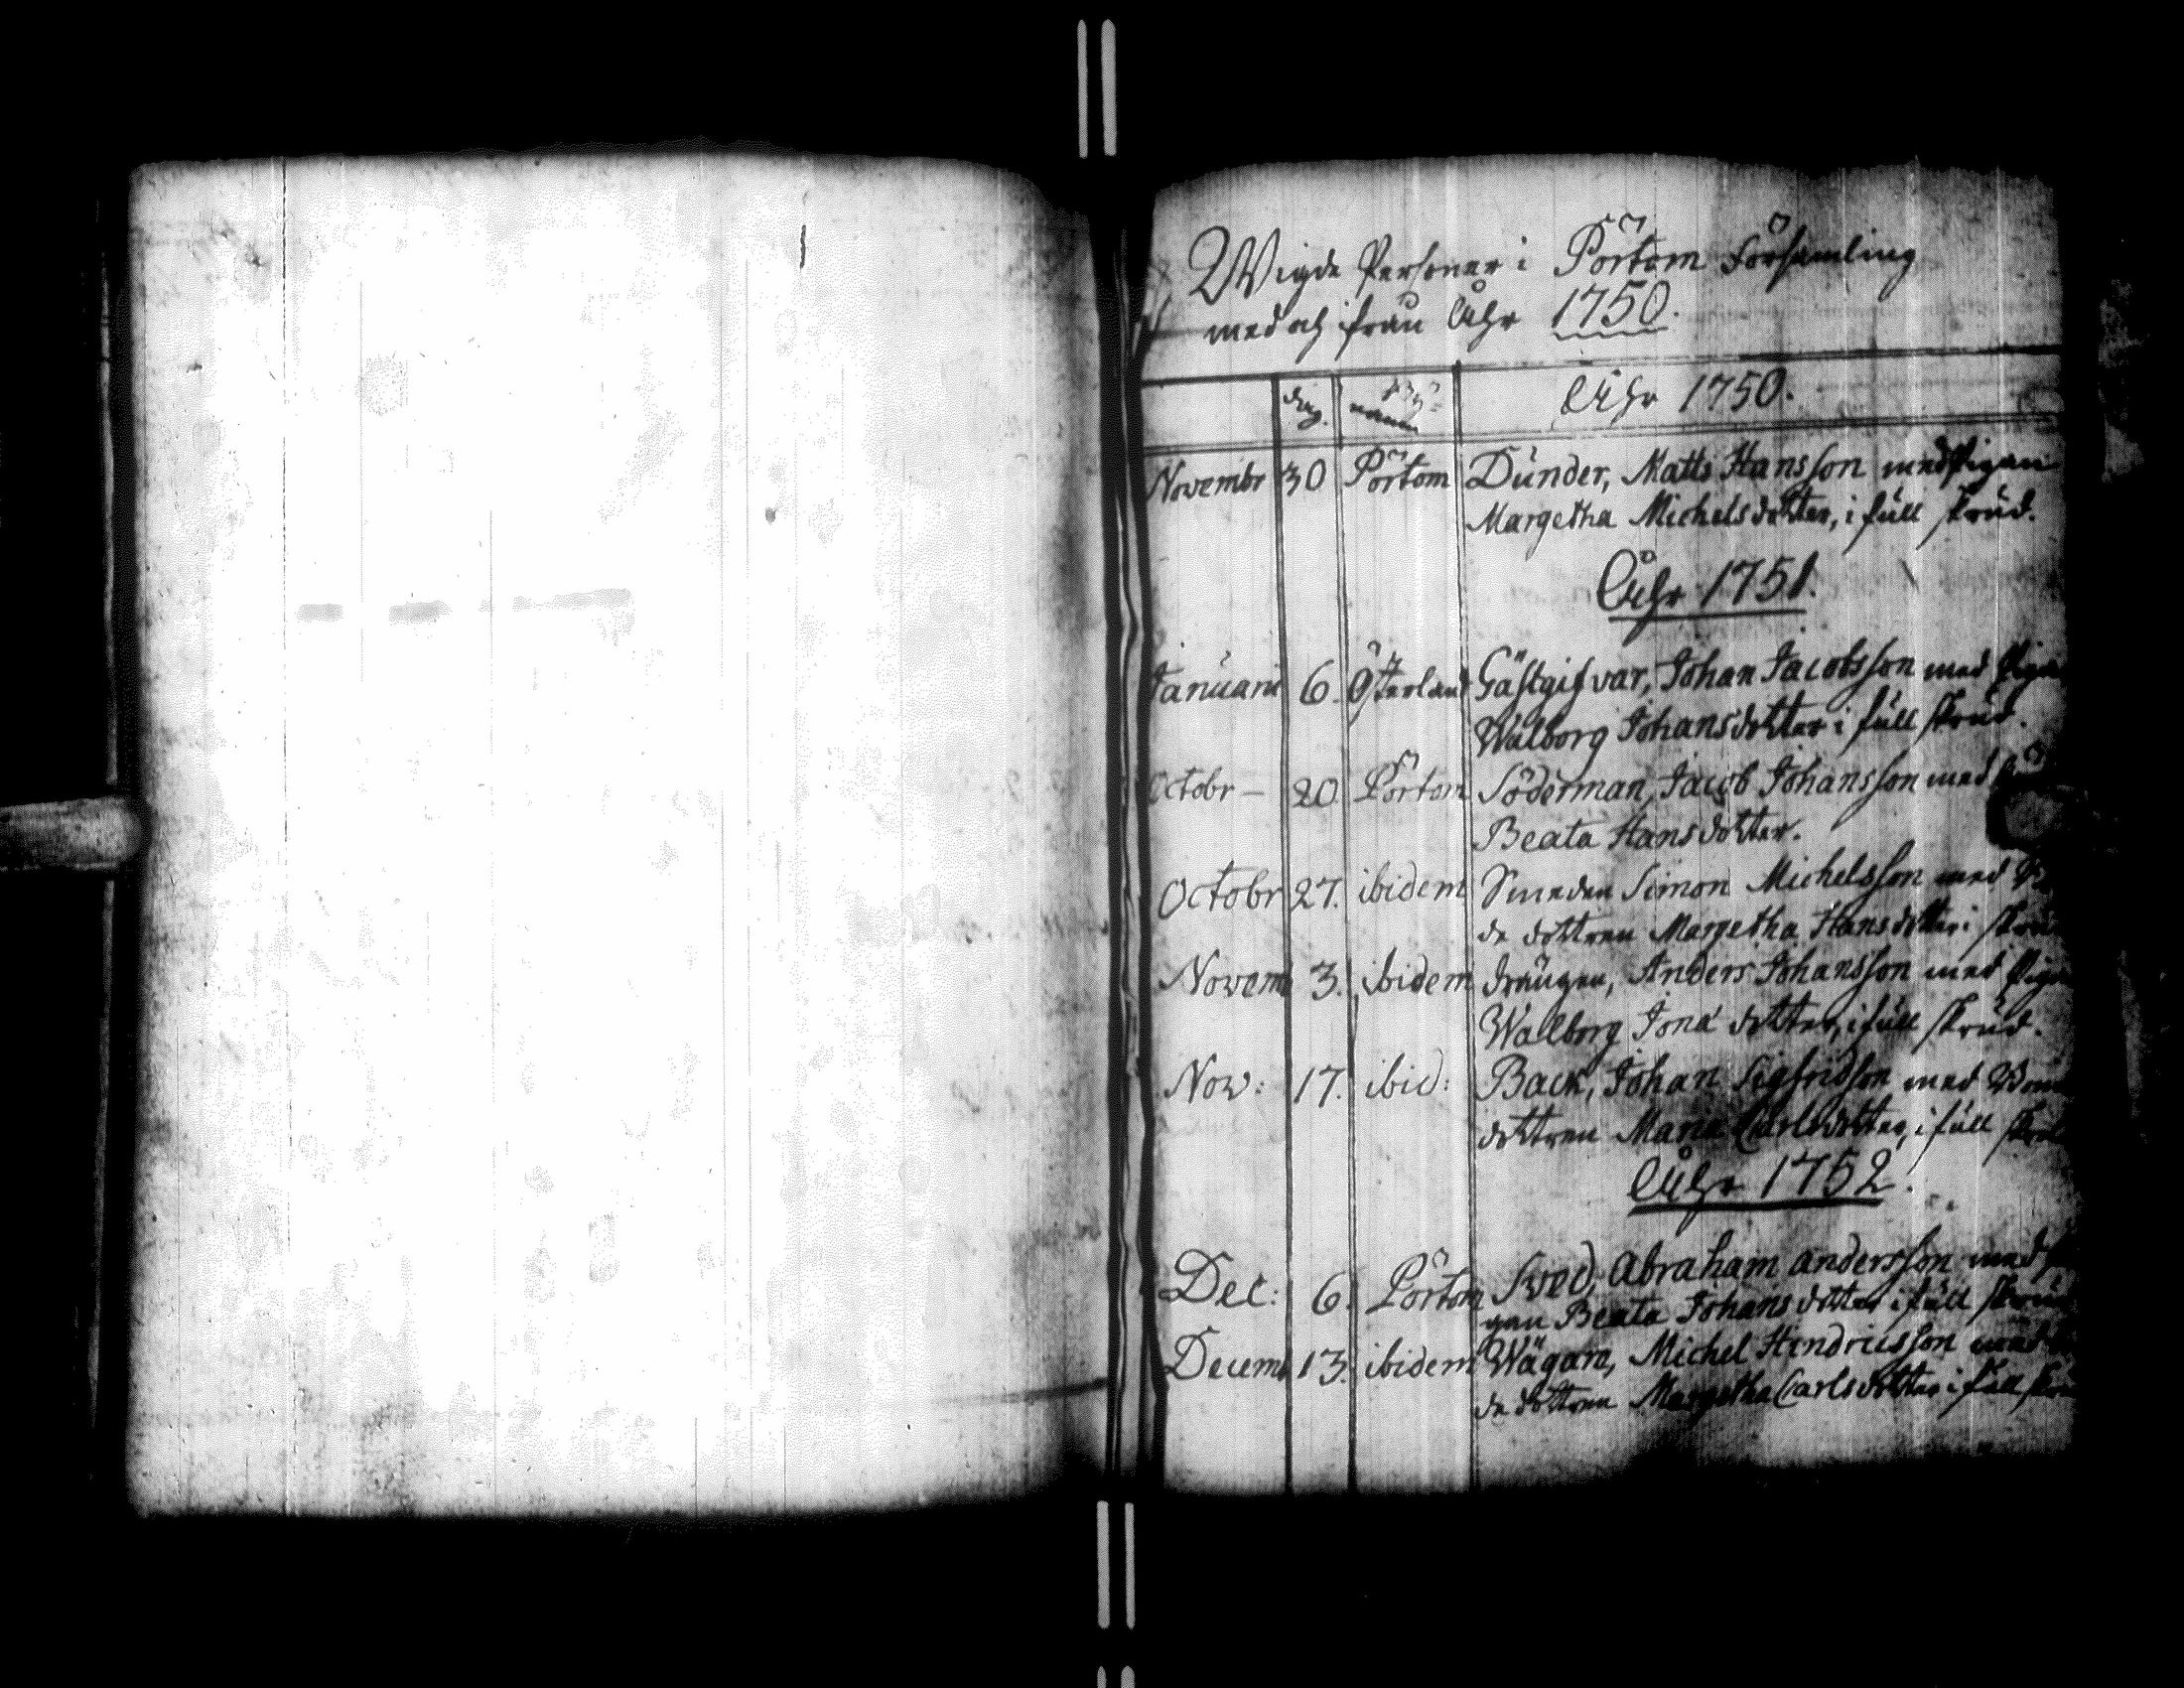 Wigde Personer i Pörtom Församling
med och ifrån Åhr 1750.
dag. Byn namn Åhr 1750.
Novembr 30 Pörtom Dunder, Matts Hansson med Pigan
Margetha Michelsdotter, i full skrud.
Åhr 1751.
Januarii 6. Österland Gästgifvar, Johan Jacobsson med Pigan
Walborg Johansdotter i full skrud.
Octobr – 20 Pörtom Söderman, Jacob Johansson med
Beata Hansdotter.
Octobr 27. ibidem Smeden Simon Michelsson med
de dottren Margetha Hansdotter i skrud
Novem 3. ibidem drängen, Anders Johansson med Pigan
Walborg Jona dotter, i full skrud.
Nov: 17. ibid: Back, Johan Sigfridsson med Bon
dottren Maria Carlsdotter, i full skrud
Åhr 1752.
Dec: 6. Pörtom Sved, Abraham Andersson med
gan Beata Johansdotter i full skrud
Decemb 13. ibidem Wägara, Michel Hendricsson med
de dottren Margetha Carlsdotter i full skru